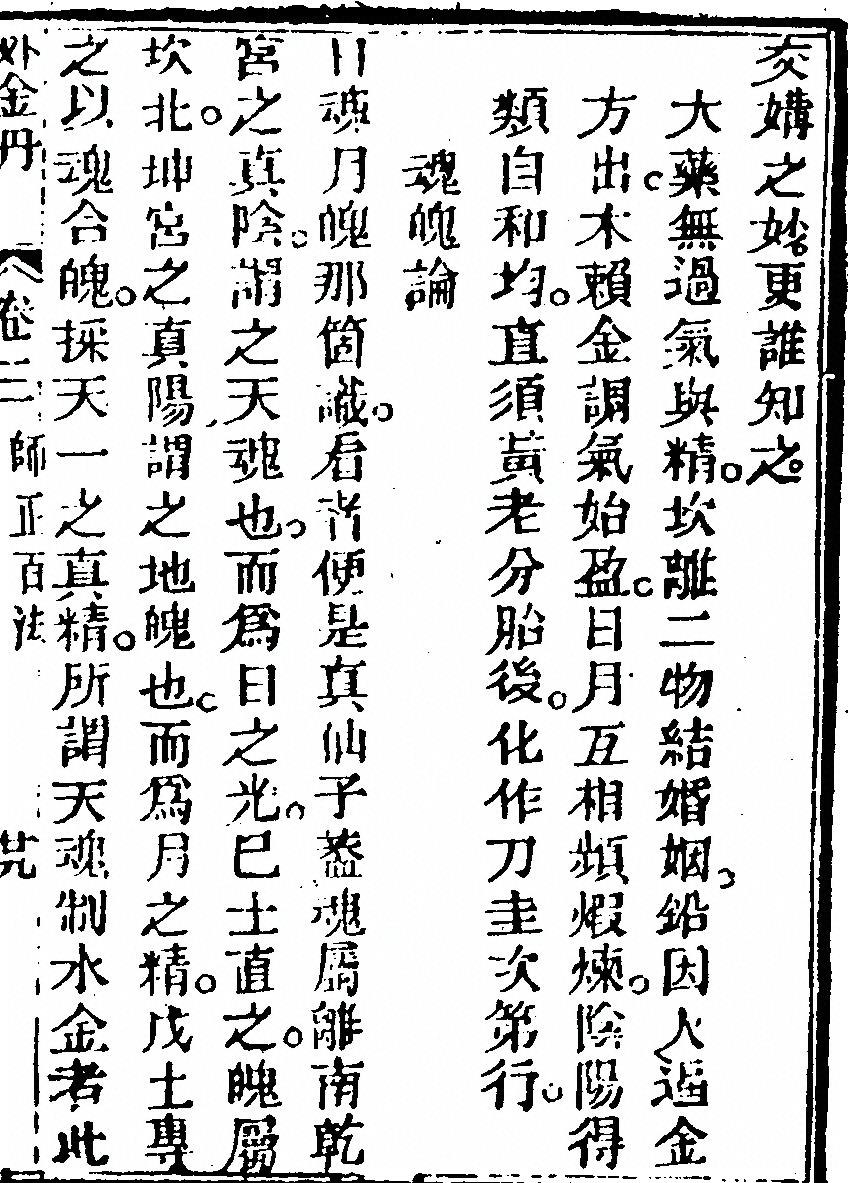 交媾之妙更誰知之。
大藥無過氣與精。坎離二物結婚姻。鉛因火逼金
方出。木賴金調氣始盈。日月互相頻煆煉。陰陽得
類自和均。直須黃老分胎後。化作刀圭次第行。
魂魄論
日魂月魄那箇識。看者便是真仙子葢魂屬離南乾
宮之真陰。謂之天魂也。而爲日之光。巳土直之。魄屬
坎北。坤宮之真陽謂之地魄也。而爲月之精。戊土專
之以魂合魄。採天一之真精。所謂天魂制水金者此
外金丹 卷二 師正百法